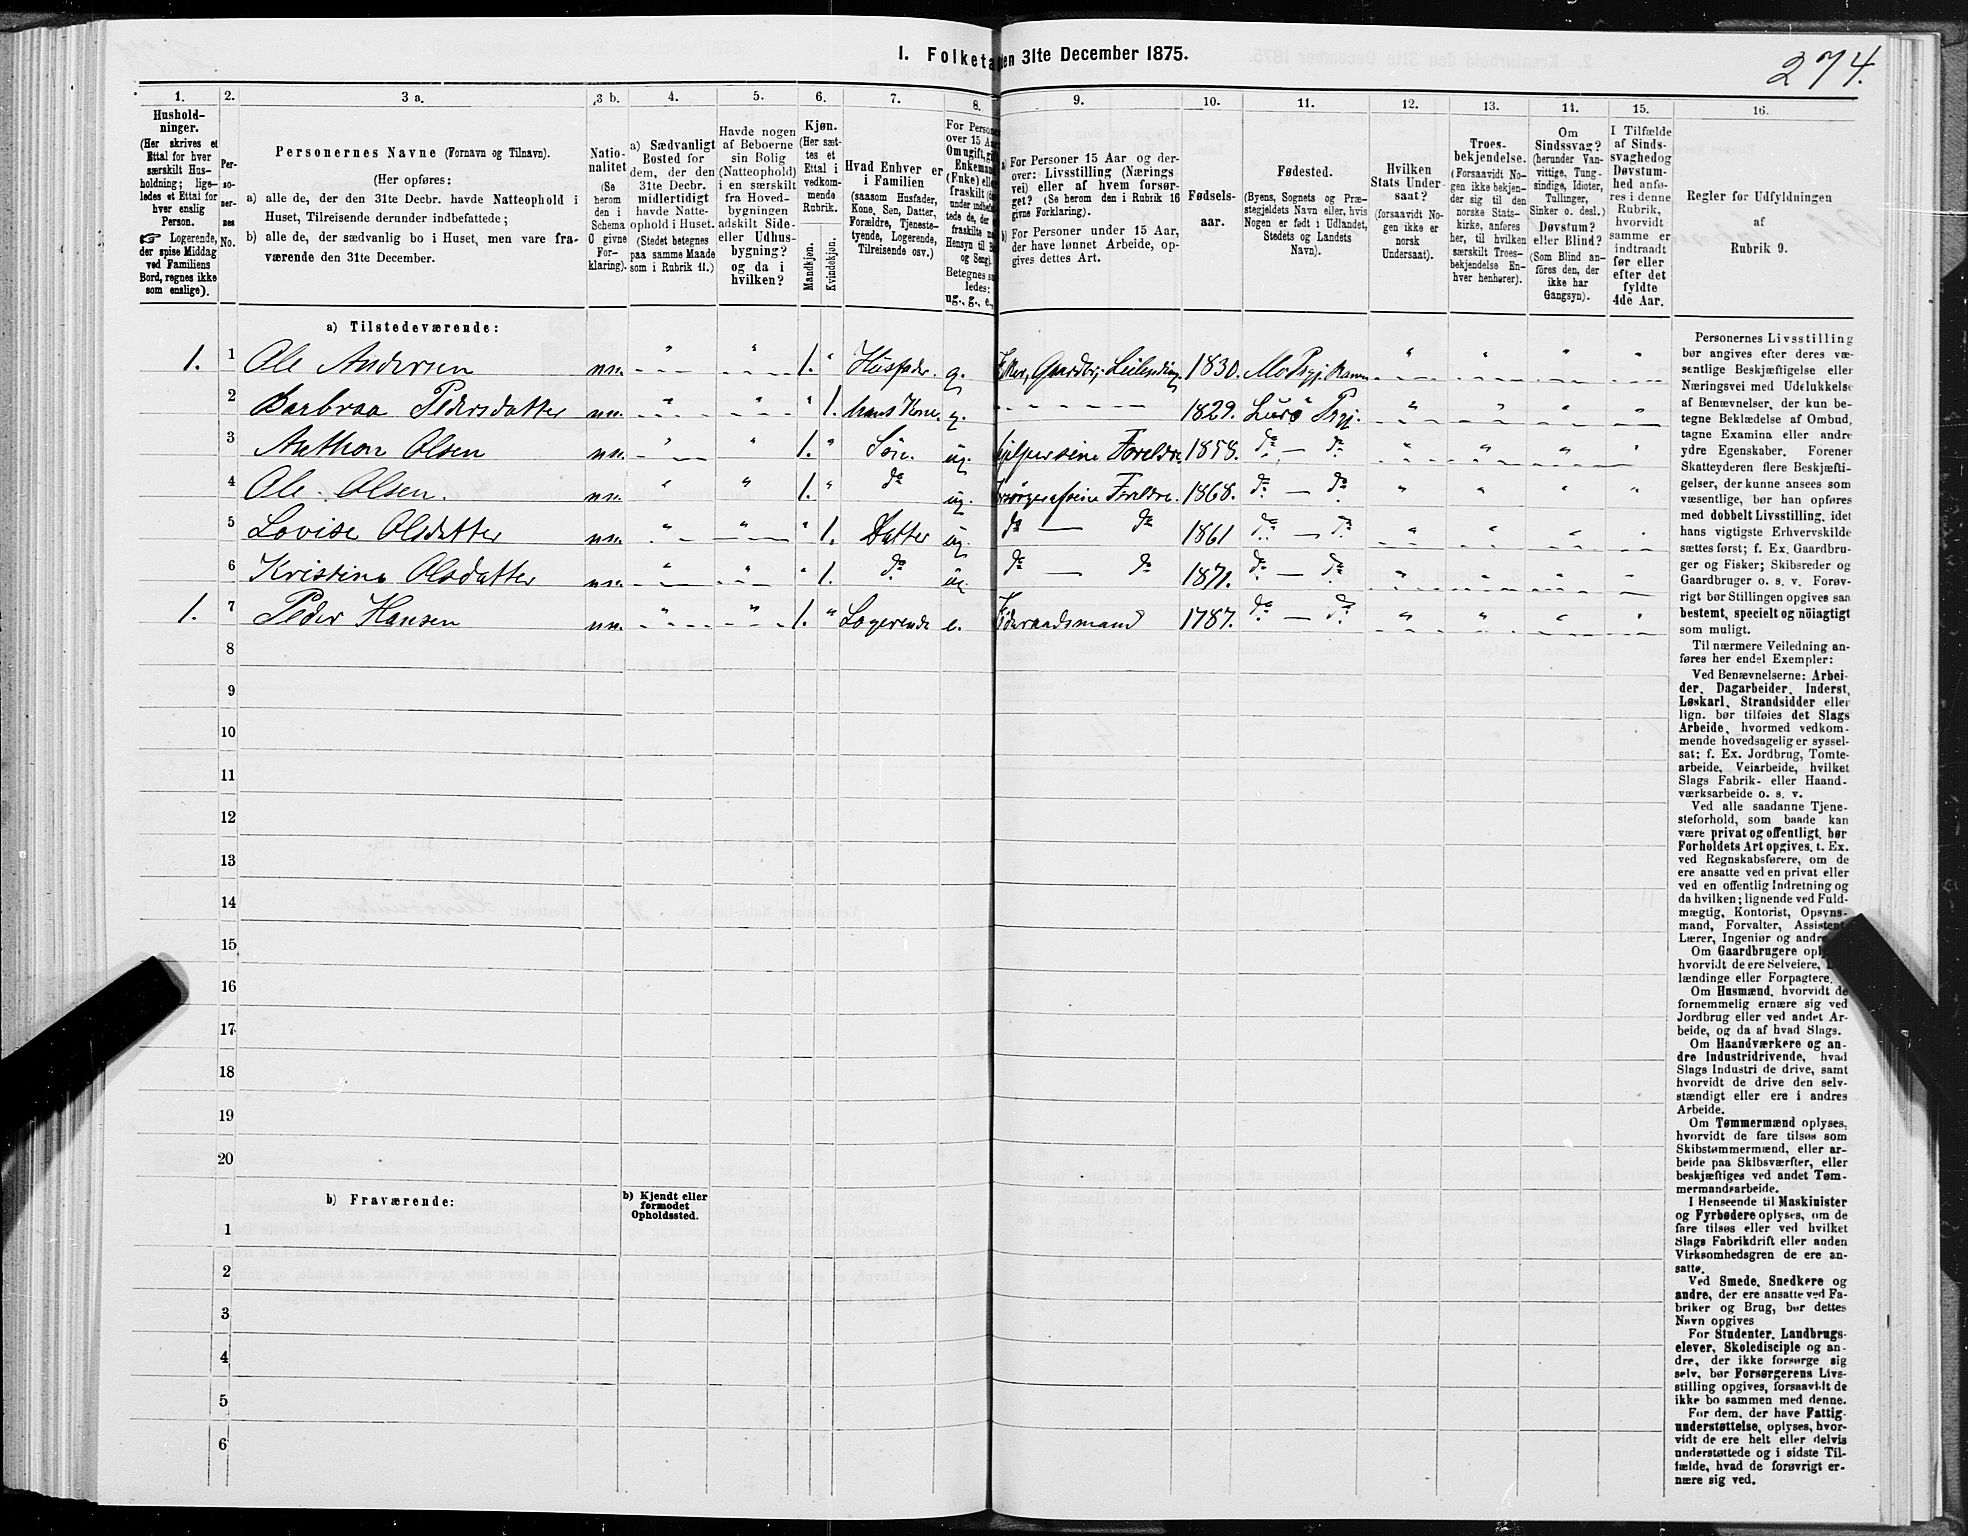 1. Folketa en 31te December 1875.
274.
1. 2. 3 a. 3 b. 4. 5. 6. 7. 8. 9. 10. 11. 12. 13. 14. 15. 16.
Hushold-
ninger.
(Her skrives et
Ettal for hver
særskilt Hus-
holdning; lige-
ledes et Ettal for
hver enslig
Person.
Logerende,
der spise Middag
ved Familiens
Bord, regnes ikke
som enslige).
Per-
so-
ner-
nes
No.
Personernes Navne (Fornavn og Tilnavn).
(Her opføres:
a) alle de, der den 31te Decbr. havde Natteophold i
Huset, Tilreisende derunder indbefattede;
b) alle de, der sædvanlig bo i Huset, men vare fra-
værende den 31te December.
Natio-
nalitet
(Se
herom
den i
Schema
0 givne
For-
klaring).
a) Sædvanligt
Bosted for
dem, der den
31te Decbr.
midlertidigt
havde Natte-
ophold i Huset.
(Stedet betegnes
paa samme Maade
som i Rubrik 11.)
Havde nogen
af Beboerne
sin Bolig
(Natteophold)
i en særskilt
fra Hoved-
bygningen
adskilt Side-
eller Udhus-
bygning?
og da i
hvilken?
Kjøn.
(Her sæt-
tes et
Ettal i
vedkom-
mende
Rubrik.
Mandkjøn.
Kvindekjøn.
Hvad Enhver er
i Familien
(saasom Husfader,
Kone, Søn, Datter,
Forældre, Tjeneste-
tyende, Logerende,
Tilreisende osv.)
For Persone
over 15 Aa
Om ugift, gi
Enkeman
(Enke) elle
fraskilt (de
under indbe
tede de, der e
fraskilte me
Hensyn til B
og Seng).
Betegnes sa
ledes:
ug., g., e.,
a) For Personer 15 Aar og der-
over: Livsstilling (Nærings
vei) eller af hvem forsør-
get? (Se herom den i Rubrik 16
givne Forklaring).
b) For Personer under 15 Aar,
der have lønnet Arbeide, op-
gives dettes Art.
Fødsels-
aar.
Fødested.
(Byens, Sognets og Præ-
stegjeldets Navn eller, hvis
Nogen er født i Udlandet,
Stedets og Landets
Navn).
Hvilken
Stats Under-
saat?
(forsaavidt No-
gen ikke er
norsk
Undersaat).
Troes-
bekjendelse.
(Forsaavidt No-
gen ikke bekjen-
der sig til den
norske Stats-
kirke, anføres
her, til hvilken
særskilt Troes-
bekjendelse En-
hver henhører).
Om
Sindssvag?
(herunder Van-
vittige, Tung-
sindige, Idioter,
Tullinger,
Sinker o. desl.)
Døvstum?
eller Blind?
(Som Blind an-
føres den, der
ikke har
Gangsyn).
I Tilfælde
af Sinds-
svaghedog
Døvstum-
hed anfø-
res i denne
Rubrik,
hvorvidt
samme er
indtraadt
før eller
efter det
fyldte
4de Aar.
Regler for Udfyldningen
af
Rubrik 9.
a) Tilstedeværende:
1. 1 Ole Andersen nn. " " 1. " Husfader. g. Fisker, Gaardbr; Leilending 1830. Mo Prgj. Ranen " " " "
2 Barbraa Pedersdatter nn. " " " 1. hans Kone g. 1829. Lurö Prgj. " " " "
3 Anthon Olsen nn. " " 1. " Søn. ug. hjelper sine Foreldre 1858. do — do " " " "
4 Ole Olsen. nn. " " 1. " do ug. Forsørges af sine Foreldre. 1868. do — do " " " "
5 Lovise Olsdatter nn. " " " 1. Datter ug. do — do 1861 do — do " " " "
6 Kristine Olsdatter nn. " " " 1. do ug. do — do 1871. do — do " " " "
1. 7 Peder Hansen nn. " " 1. " Logerende e. Føderaadsmand 1787. do — do " " " "
8
9
10
11
12
13
14
15
16
17
18
19
20
b) Fraværende:
b) Kjendt eller
formodet
Opholdssted.
1
2
3
4
5
6
Personernes Livsstilling
bør angives efter deres væ-
sentlige Beskjæftigelse eller
Næringsvei med Udelukkelse
af Benævnelser, der kun be-
tegne Beklædelse af Ombud,
tagne Examina eller andre
ydre Egenskaber. Forener
Skatteyderen flere Beskjæfti-
gelser, der kunne ansees som
væsentlige, bør han opføres
med dobbelt Livsstilling, idet
hans vigtigste Erhvervskilde
sættes først; f. Ex. Gaardbru-
ger og Fisker; Skibsreder og
Gaardbruger o. s. v. Forøv-
rigt bør Stillingen opgives saa
bestemt, specielt og nöiagtigt
som muligt.
Til nærmere Veiledning an-
føres her endel Exempler:
Ved Benævnelserne: Arbei-
der, Dagarbeider, Inderst,
Løskarl, Strandsidder eller
lign. bør tilføies det Slags
Arbeide, hvormed vedkom-
mende hovedsagelig er syssel-
sat; f. Ex. Jordbrug, Tomte-
arbeide, Veiarbeide, hvilket
Slags Fabrik- eller Haand-
værksarbeide o. s. v.
Ved alle saadanne Tjene-
steforhold, som baade kan
være privat og offentligt, bør
Forholdets Art opgives, t. Ex.
ved Regnskabsførere, om de
ere ansatte ved en privat eller
ved en offentlig Indretning og
da hvilken; lignende ved Fuld-
mægtig, Kontorist, Opsyns-
mand, Forvalter, Assistent,
Lærer, Ingeniør og andre
Om Gaardbrugere opl
hvorvidt de ere Selveiere,
lændinge eller Forpagtere.
Om Husmænd, hvorvidt de
fornemmelig ernære sig ved
Jordbrug eller ved andet Ar-
beide, og da af hvad Slags.
Om Haandværkere og an-
dre Industridrivende, hvad
Slags Industri de drive, samt
hvorvidt de drive den selv-
stændigt eller ere i andres
Arbeide.
Om Tømmermænd oplyses,
hvorvidt de fare tilsøs som
Skibstømmermænd, eller ar-
beide paa Skibsværfter, eller
beskjæftiges ved andet Tøm-
mermandsarbeide.
I Henseende til Maskinister
og Fyrbødere oplyses, om de
fare tilsøs eller ved hvilket
Slags Fabrikdrift eller anden
Virksomhedsgren de ere an-
satte.
Ved Smede, Snedkere og
andre, der ere ansatte ved Fa-
briker og Brug, bør dettes
Navn opgives
For Studenter, Landbrugs-
elever, Skoledisciple og an-
dre, der ikke forsørge sig
selv, bør Forsørgerens Livs-
stilling opgives, forsaavidt de
ikke bo sammen med denne.
For dem, der have Fattig-
understøttelse, oplyses, hvor-
vidt de ere helt eller delvis
understøttede og i sidste Til-
fælde, hvad de forøvrigt er-
nære sig ved.